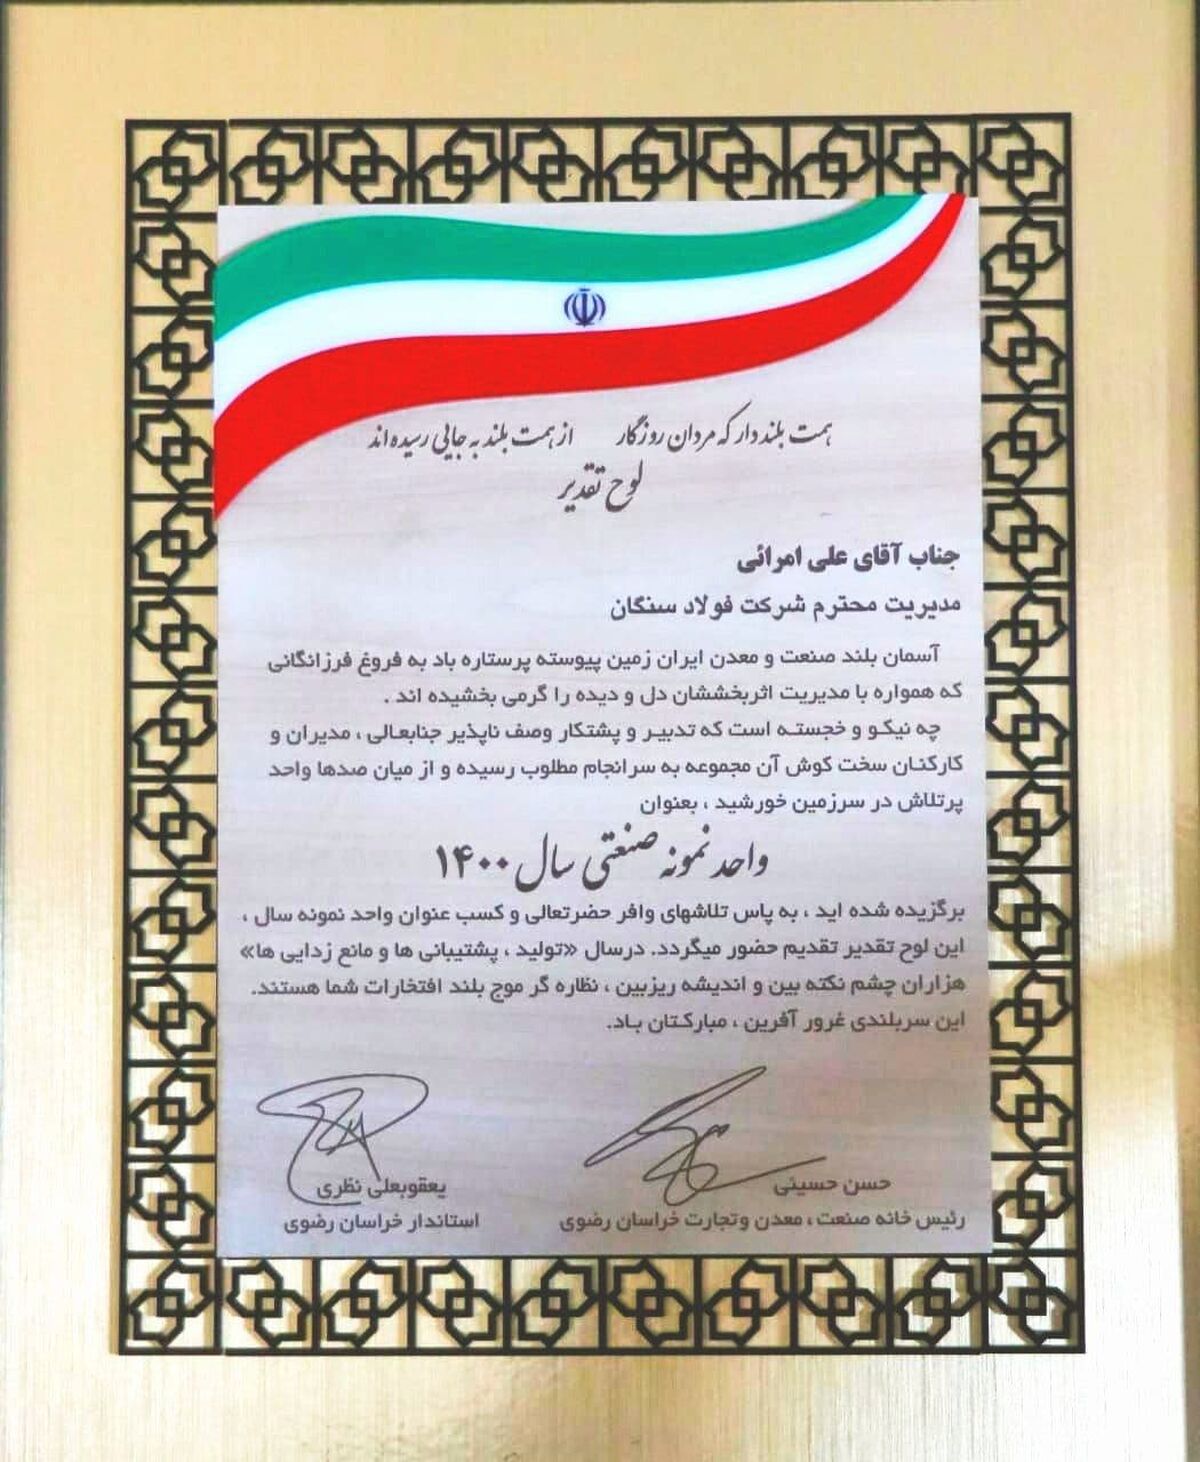 همت بلند دار که مردان روزگار از همت بلند به جایی رسیده اند
لوح تقدیر
جناب آقای علی امرائی
مدیریت محترم شرکت فولاد سنگان
آسمان بلند صنعت و معدن ایران زمین پیوسته پرستاره باد به فروغ فرزانگانی
که همواره با مدیریت اثربخششان دل و دیده را گرمی بخشیده اند .
چه نیکو و خجسته است که تدبیر و پشتکار وصف ناپذیر جنابعالی ، مدیران و
کارکنان سخت کوش آن مجموعه به سرانجام مطلوب رسیده و از میان صدها واحد
پرتلاش در سرزمین خورشید ، بعنوان
واحد نمونه صنعتی سال ۱۴۰۰
برگزیده شده اید ، به پاس تلاشهای وافر حضرتعالی و کسب عنوان واحد نمونه سال ،
این لوح تقدیر تقدیم حضور میگردد. درسال «تولید ، پشتیبانی ها و مانع زدایی ها»
هزاران چشم نکته بین و اندیشه ریزبین ، نظاره گر موج بلند افتخارات شما هستند.
این سربلندی غرور آفرین ، مبارکتان باد.
حسن حسینی
رئیس خانه صنعت ، معدن وتجارت خراسان رضوی
یعقوبعلی نظری
استاندار خراسان رضوی